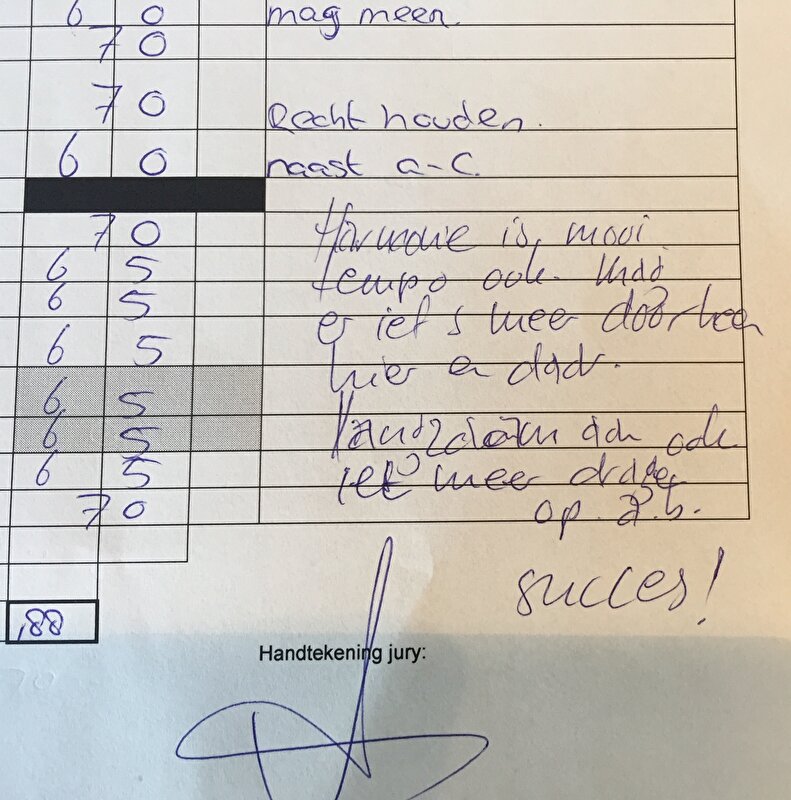 6 0 mag meer.
7 0
7 0 Recht houden.
6 0 naast a-C.
7 0 Harmonie is mooi
6 5 tempo ook. Mag
6 5 er iets meer doorheen
6 5 hier en daar.
6 5
6 5 aan ook
6 5 iets meer dragen
7 0 op. a.b.
succes!
,88
Handtekening jury: